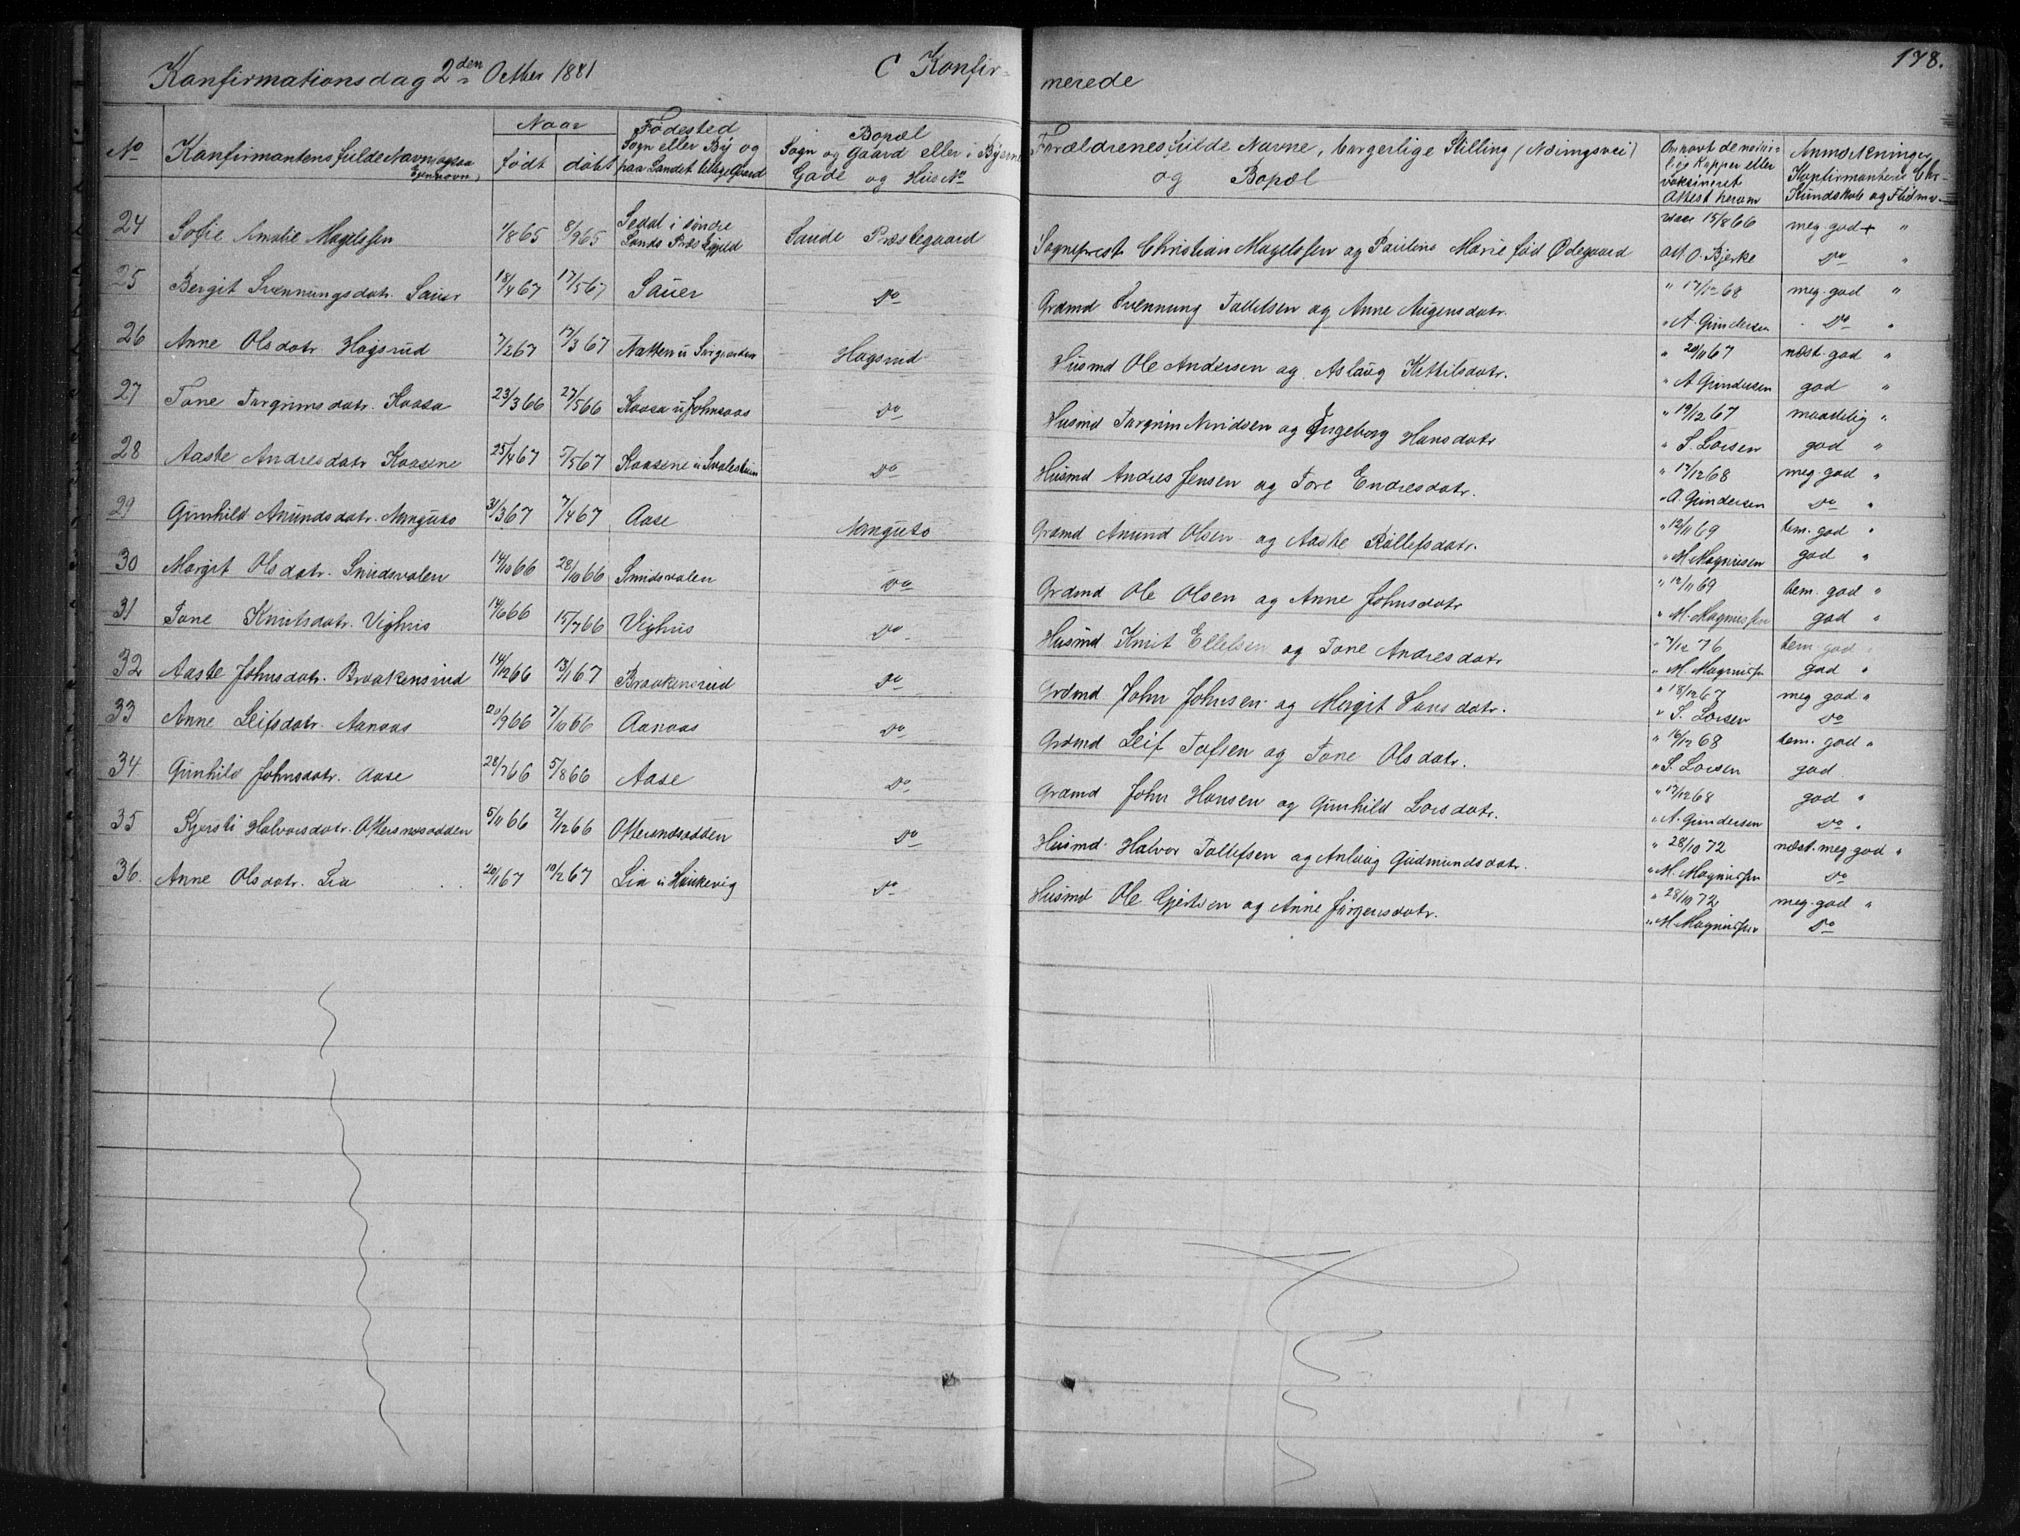 178.
Konfirmationsdag 2den Octber 1881 C Konfir- merede
No Konfirmantens fulde Navn ogsaa Egennavn Naar født døbt Fødested Sogn eller By og paa Landet tillige Gaard Bopæl Sogn og Gaard eller i Byerne Gade og Hus No Forældrenes fulde Navne, borgerlige Stilling (Næringsvei) og Bopæl Om havt de naturlige Kopper eller vaksineret Attest herom Anmærkninger Konfirmantens Chr. Kundskab og Flid m.v.
24 Sofie Amalie Magelssen 1/8 65 8/9 65 i søndre Lands Præstegjeld Saude Præstegaard Sogneprest Christian Magelssen og Pauline Marie fød Ødegaard vacc 15/8 66 att O. Bjerke meg. god + " Do "
25 Bergit Svennungsdatr. Sauer 18/4 67 17/5 67 Sauer Do Grdmd Svennung Tollefsen og Anne Augensdatr. " 17/12 68 " A. Gundersen meg. god " Do "
26 Anne Olsdatr. Hogsrud 7/2 67 17/3 67 Hogsrud Husmd Ole Andersen og Aslaug Kittilsdatr. " 20/11 67 " A Gundersen næst. god " god "
27 Tone Targrimsdatr. Kaasa 23/3 66 27/5 66 Kaasa u Johnsaas Do Husmd Targrim Nividsen og Ingeborg Hansdatr " 19/12 67 " S. Larsen maadelig " god "
28 Aaste Andresdatr Kaasene 25/4 67 /5 67 Kaasene u Do Husmd Andres Jensen og Tore Endresdatr. " 17/12 68 " A. Gundersen meg. god " Do "
29 Gunhild Anundsdatr. Nanguto 31/3 67 7/4 67 Aase Nanguto Grdmd Anund Olsen og Aaste Rollefsdatr. " 12/11 69 " M. Magnusen tem. god " god "
30 Margit Olsdatr. Smidsvalen 14/10 66 28/10 66 Smidsvalen Do Grdmd Ole Olsen og Anne Johnsdatr " 12/11 69 " M. Magnussen tem. god " god "
31 Tone Knutsdatr. Vighus 14/6 66 15/7 66 Vighus Do Husmd Knut Ellefsen og Tone Andresdatr " 7/12 76 " M. Magnussen tem. god " god "
32 Aaste Johnsdatr. Braakensrud 14/12 66 13/1 67 Braakensrud Do Grdmd John Johnsen og Margit Hansdatr. " 18/12 67 " S. Larsen meg god " Do
33 Anne Leifsdatr. Aanaas 20/9 66 7/10 66 Aanaas Do Grdmd Leif Tofsen og Tone Olsdatr. " 16/12 68 " S. Larsen tem. god " god
34 Gunhild Johnsdatr. Aase 28/7 66 5/8 66 Aase Do Grdmd John Hansen og Gunhild Larsdatr. " 17/12 68 " A. Gundersen god " Do "
35 Kjersti Halvorsdatr. Ottersnæsodden 5/11 66 2/12 66 Do Husmd Halvor Tollefsen og Anlaug Gudmundsdatr. " 28/10 72 " M. Magnussen næst. meg god " Do
36. Anne Olsdatr. Lia 20/1 67 10/2 67 Lia u Haukevig Do Husmd Ole Gjertsen og Anne Jørgensdatr. " 28/10 72 " M Magnussen meg. god " Do